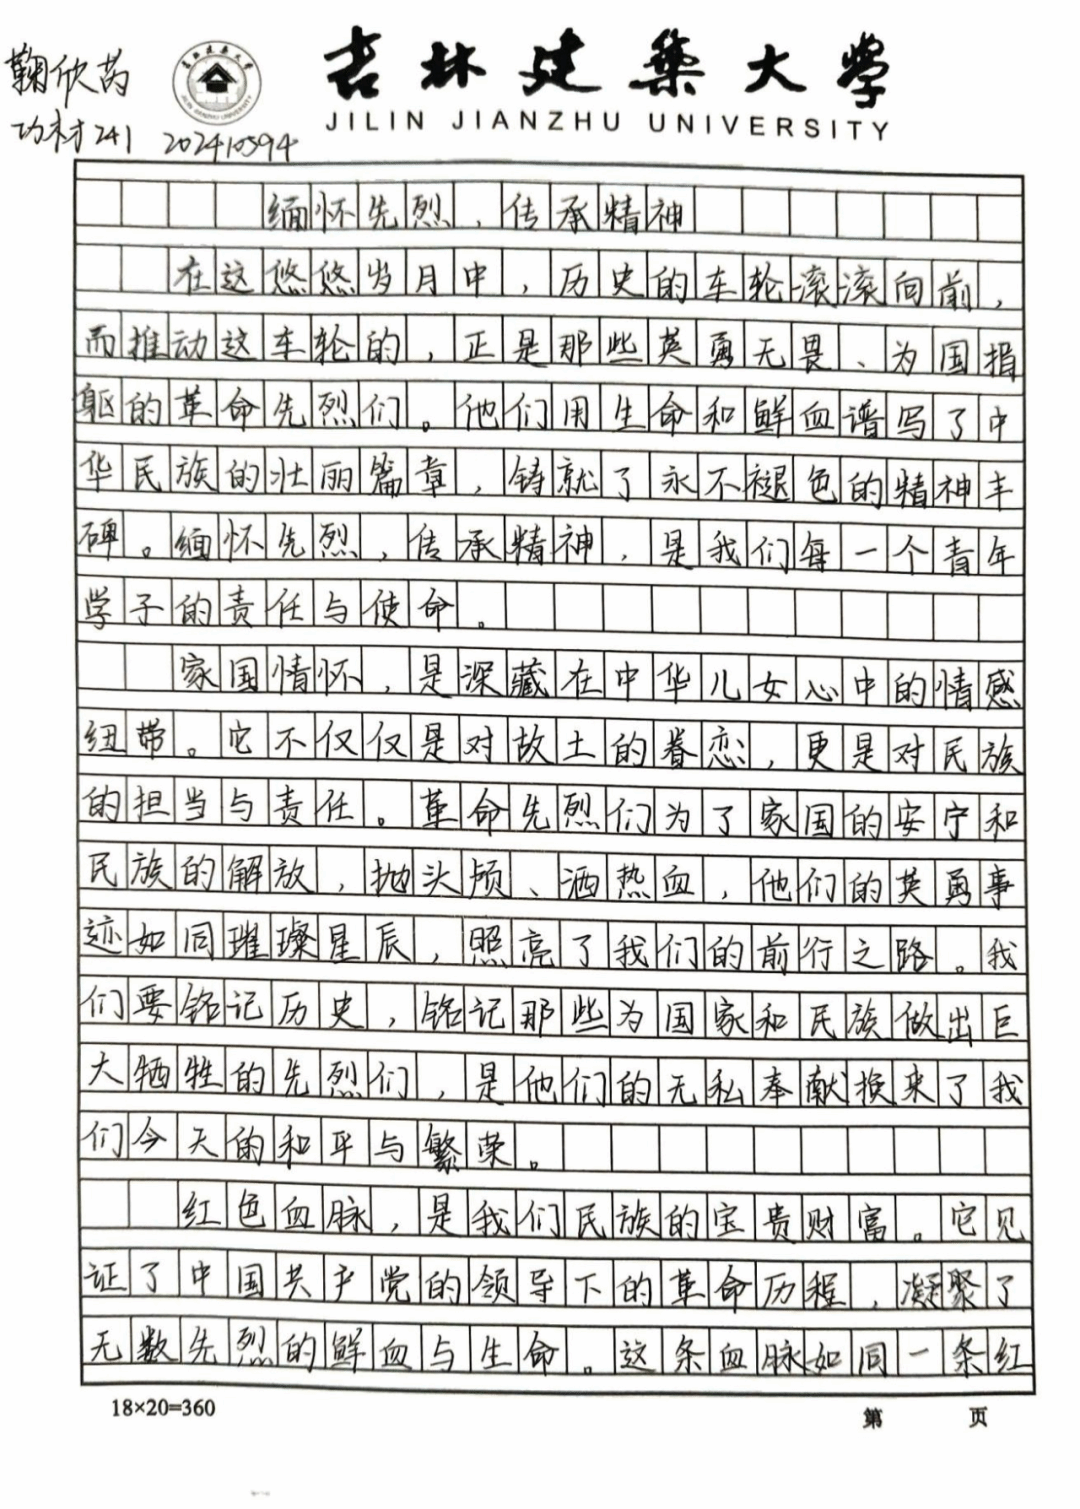 鞠欣芮
吉林建筑大学
JILIN JIANZHU UNIVERSITY
功材241 202410594
缅怀先烈，传承精神
在这悠悠岁月中，历史的车轮滚滚向前，
而推动这车轮的，正是那些英勇无畏、为国捐
躯的革命先烈们。他们用生命和鲜血谱写了中
华民族的壮丽篇章，铸就了永不褪色的精神丰
碑。缅怀先烈，传承精神，是我们每一个青年
学子的责任与使命。
家国情怀，是深藏在中华儿女心中的情感
纽带。它不仅仅是对故土的眷恋，更是对民族
的担当与责任。革命先烈们为了家国的安宁和
民族的解放，抛头颅、洒热血，他们的英勇事
迹如同璀璨星辰，照亮了我们的前行之路。我
们要铭记历史，铭记那些为国家和民族做出巨
大牺牲的先烈们，是他们的无私奉献换来了我
们今天的和平与繁荣。
红色血脉，是我们民族的宝贵财富。它见
证了中国共产党的领导下的革命历程，凝聚了
无数先烈的鲜血与生命。这条血脉如同一条红
18×20=360
第 页